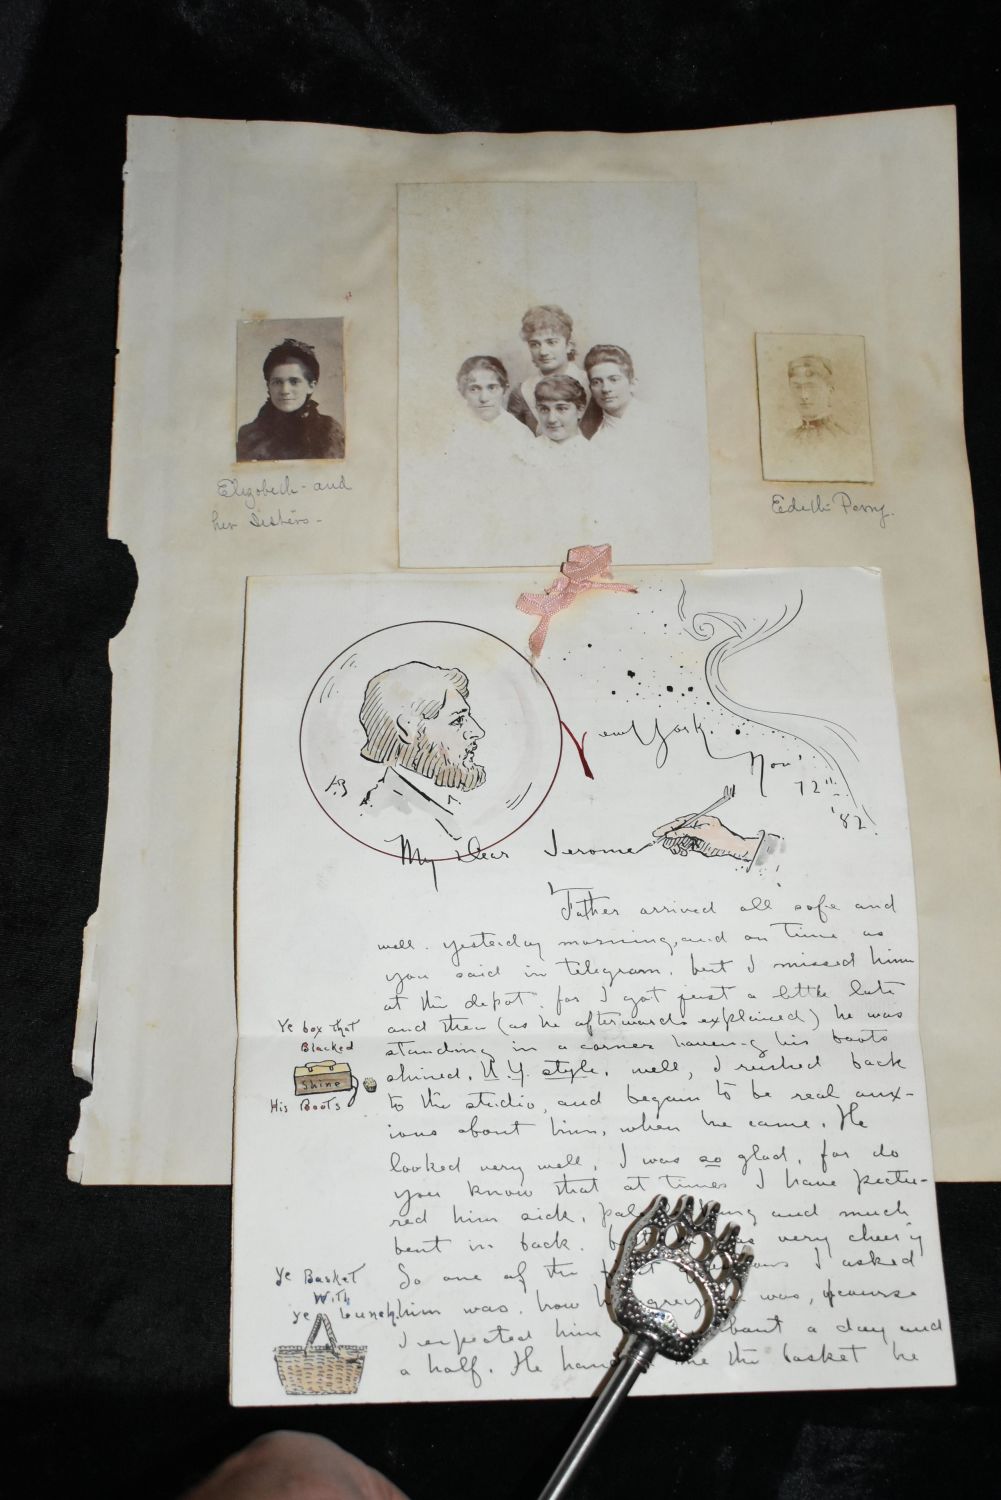 Elizabeth - and
her Sisters -
Edith Perry.
New York.
Nov'
12"
'82
My Dear Jerome
Father arrived all safe and
well. yesterday morning, and on time as
you said in telegram. but I missed him
at the depot. for I got just a little late
and then (as he afterwards explained) he was
standing in a corner haveing his boots
shined. N.Y. style. well, I rushed back
to the studio, and began to be real anx-
ious about him, when he came. He
looked very well. I was so glad, for do
you know that at times I have pictu-
red him sick, and much
bent in back. very cheery
So one of the I asked
him was. how was, of course
I expected him about a day and
a half. He me the basket he
Ye box that
Blacked
Shine
His Boots
Ye Basket
With
ye lunch